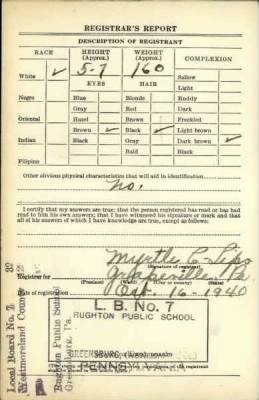 REGISTRAR'S REPORT
DESCRIPTION OF REGISTRANT
RACE
HEIGHT (Approx.)
WEIGHT (Approx.)
COMPLEXION
White ✓
5-7
160
Sallow
EYES
HAIR
Light
Negro
Blue
Blonde
Ruddy
Gray
Red
Dark
Oriental
Hazel
Brown
Freckled
Brown ✓
Black ✓
Light brown
Indian
Black
Gray
Dark brown ✓
Bald
Black
Filipino
Other obvious physical characteristics that will aid in identification
No.
I certify that my answers are true; that the person registered has read or has had
read to him his own answers; that I have witnessed his signature or mark and that
all of his answers of which I have knowledge are true, except as follows:
Myrtle C.
(Signature of registrar)
Registrar for
Grapeville, Pa
(Precinct) (Ward) (City or county) (State)
Date of registration
Oct. 16-1940
L. B. No. 7
RUGHTON PUBLIC SCHOOL
GREENSBURG
PENNSYLVANIA
Local Board No. 7
Westmoreland County
Rughton Public School
Greensburg, Pa.